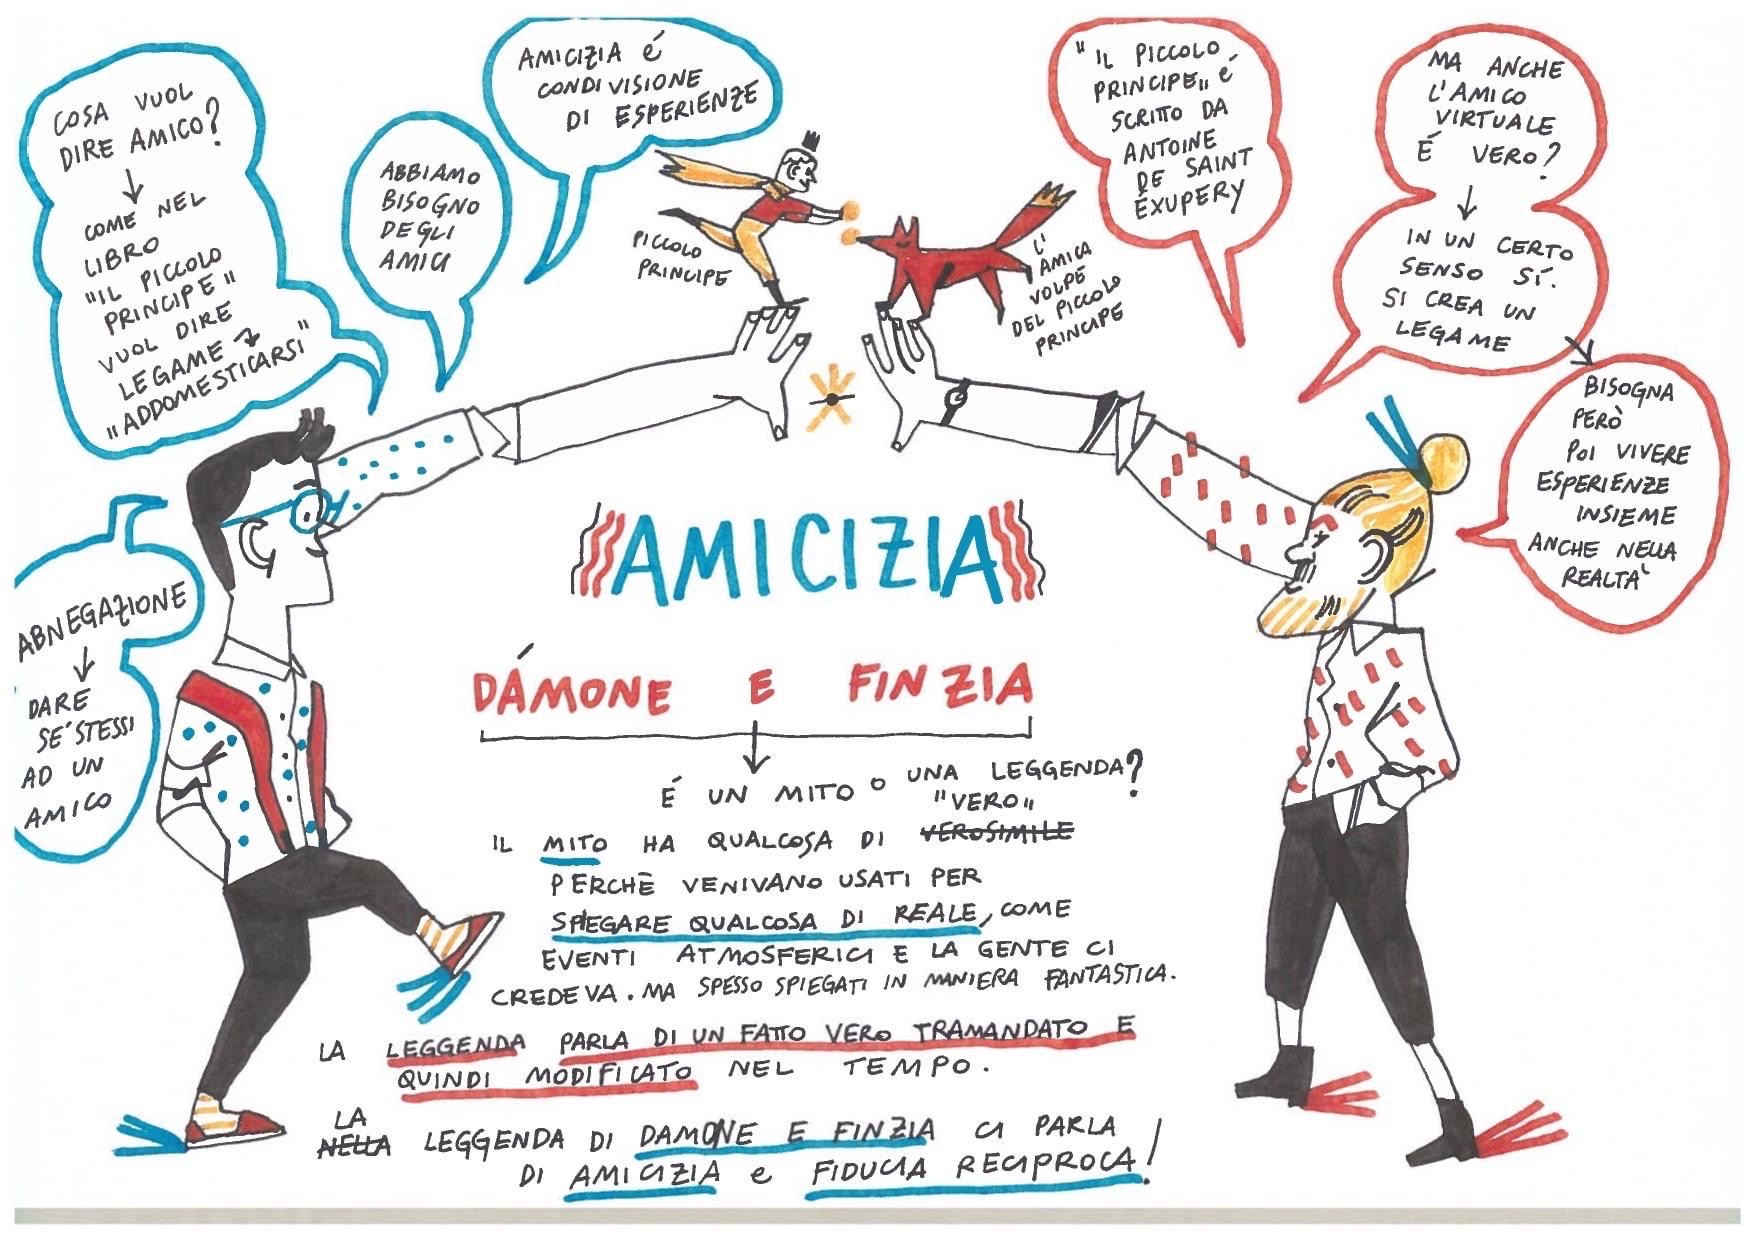 COSA VUOL
DIRE AMICO?
COME NEL
LIBRO
"IL PICCOLO
PRINCIPE"
VUOL DIRE
LEGAME
"ADDOMESTICARSI"
ABBIAMO
BISOGNO
DEGLI
AMICI
AMICIZIA É
CONDIVISIONE
DI ESPERIENZE
PICCOLO
PRINCIPE
L'
AMICA
VOLPE
DEL PICCOLO
PRINCIPE
"IL PICCOLO
PRINCIPE" É
SCRITTO DA
ANTOINE
DE SAINT
ÉXUPERY
MA ANCHE
L'AMICO
VIRTUALE
É VERO?
IN UN CERTO
SENSO SÍ.
SI CREA UN
LEGAME
BISOGNA
PERÒ
POI VIVERE
ESPERIENZE
INSIEME
ANCHE NELLA
REALTÀ
ABNEGAZIONE
DARE
SE'STESSI
AD UN
AMICO
AMICIZIA
DÁMONE E FINZIA
É UN MITO O UNA LEGGENDA?
"VERO"
IL MITO HA QUALCOSA DI VEROSIMILE
PERCHÈ VENIVANO USATI PER
SPIEGARE QUALCOSA DI REALE, COME
EVENTI ATMOSFERICI E LA GENTE CI
CREDEVA. MA SPESSO SPIEGATI IN MANIERA FANTASTICA.
LA LEGGENDA PARLA DI UN FATTO VERO TRAMANDATO E
QUINDI MODIFICATO NEL TEMPO.
LA
NELLA LEGGENDA DI DAMONE E FINZIA CI PARLA
DI AMICIZIA e FIDUCIA RECIPROCA!